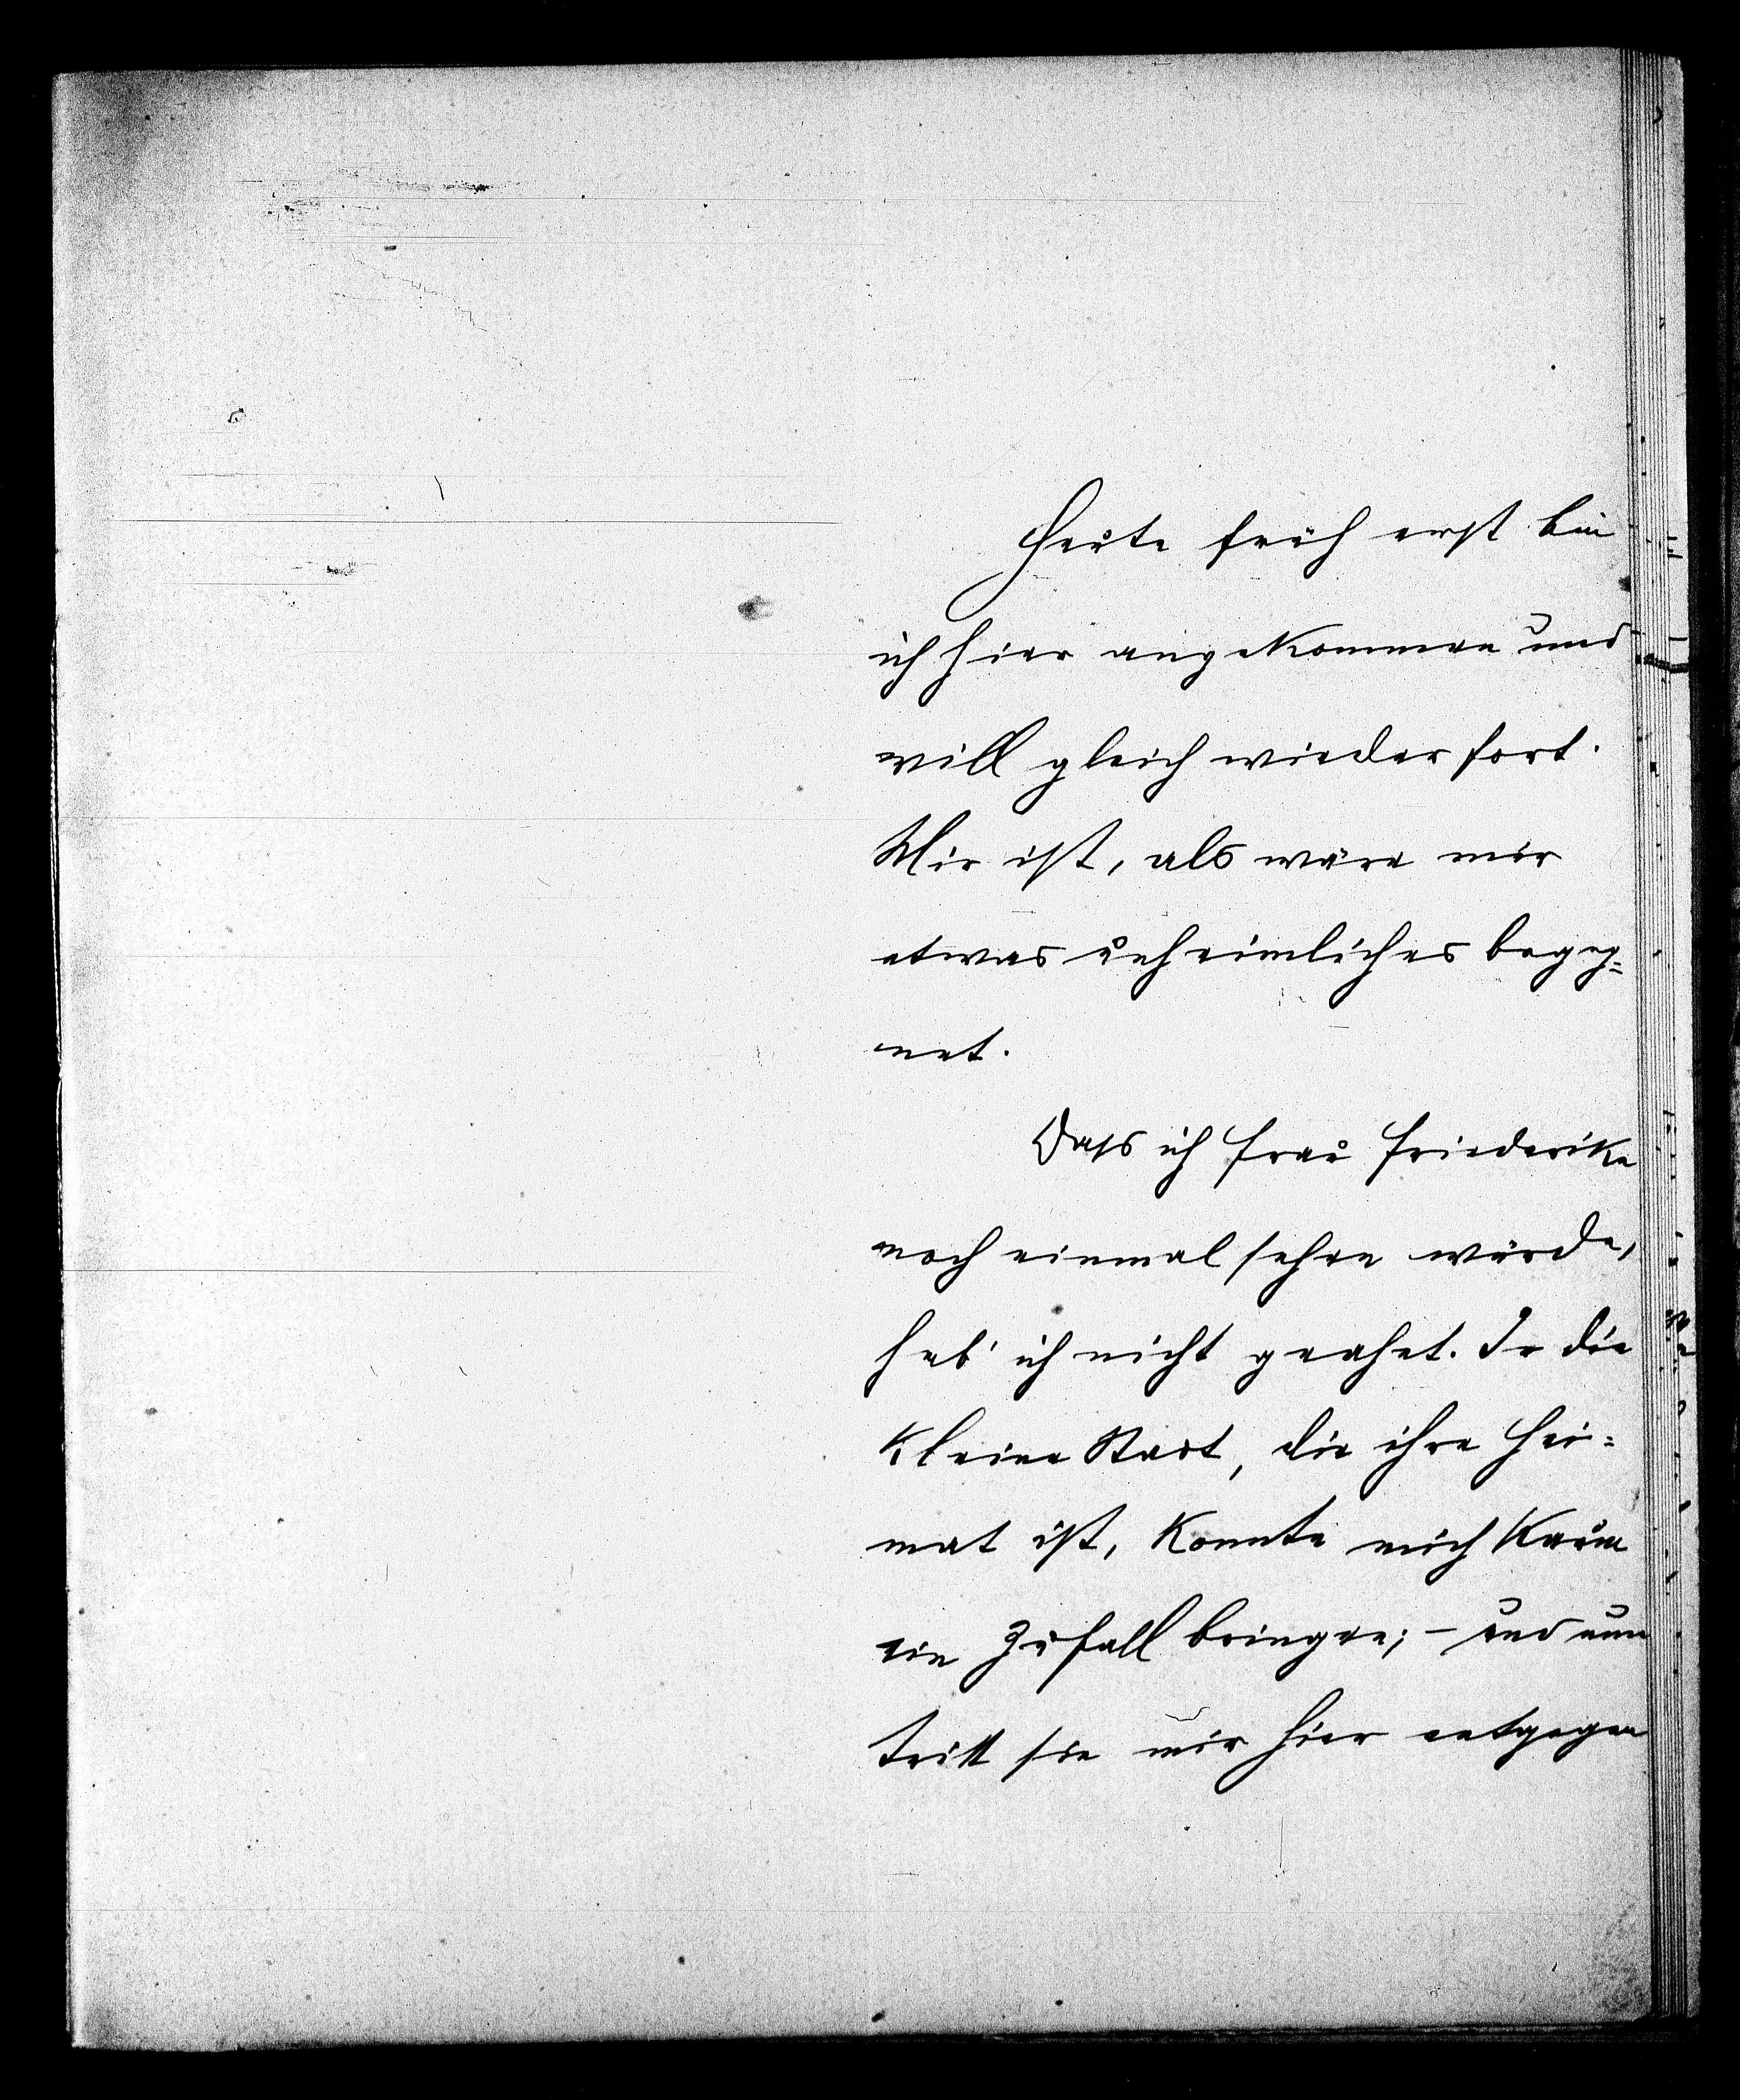 Heute früh erst bin
ich hier angekommen und
will gleich wieder fort.
Mir ist, als wäre mir
etwas unheimliches begeg=
net.
Dass ich Frau Friederike
noch einmal sehen würde,
hab' ich nicht geahnt. In die
kleine Stadt, die ihre Hei=
mat ist, konnte mich kaum
ein Zufall bringen; – und nun
tritt sie mir hier entgegen